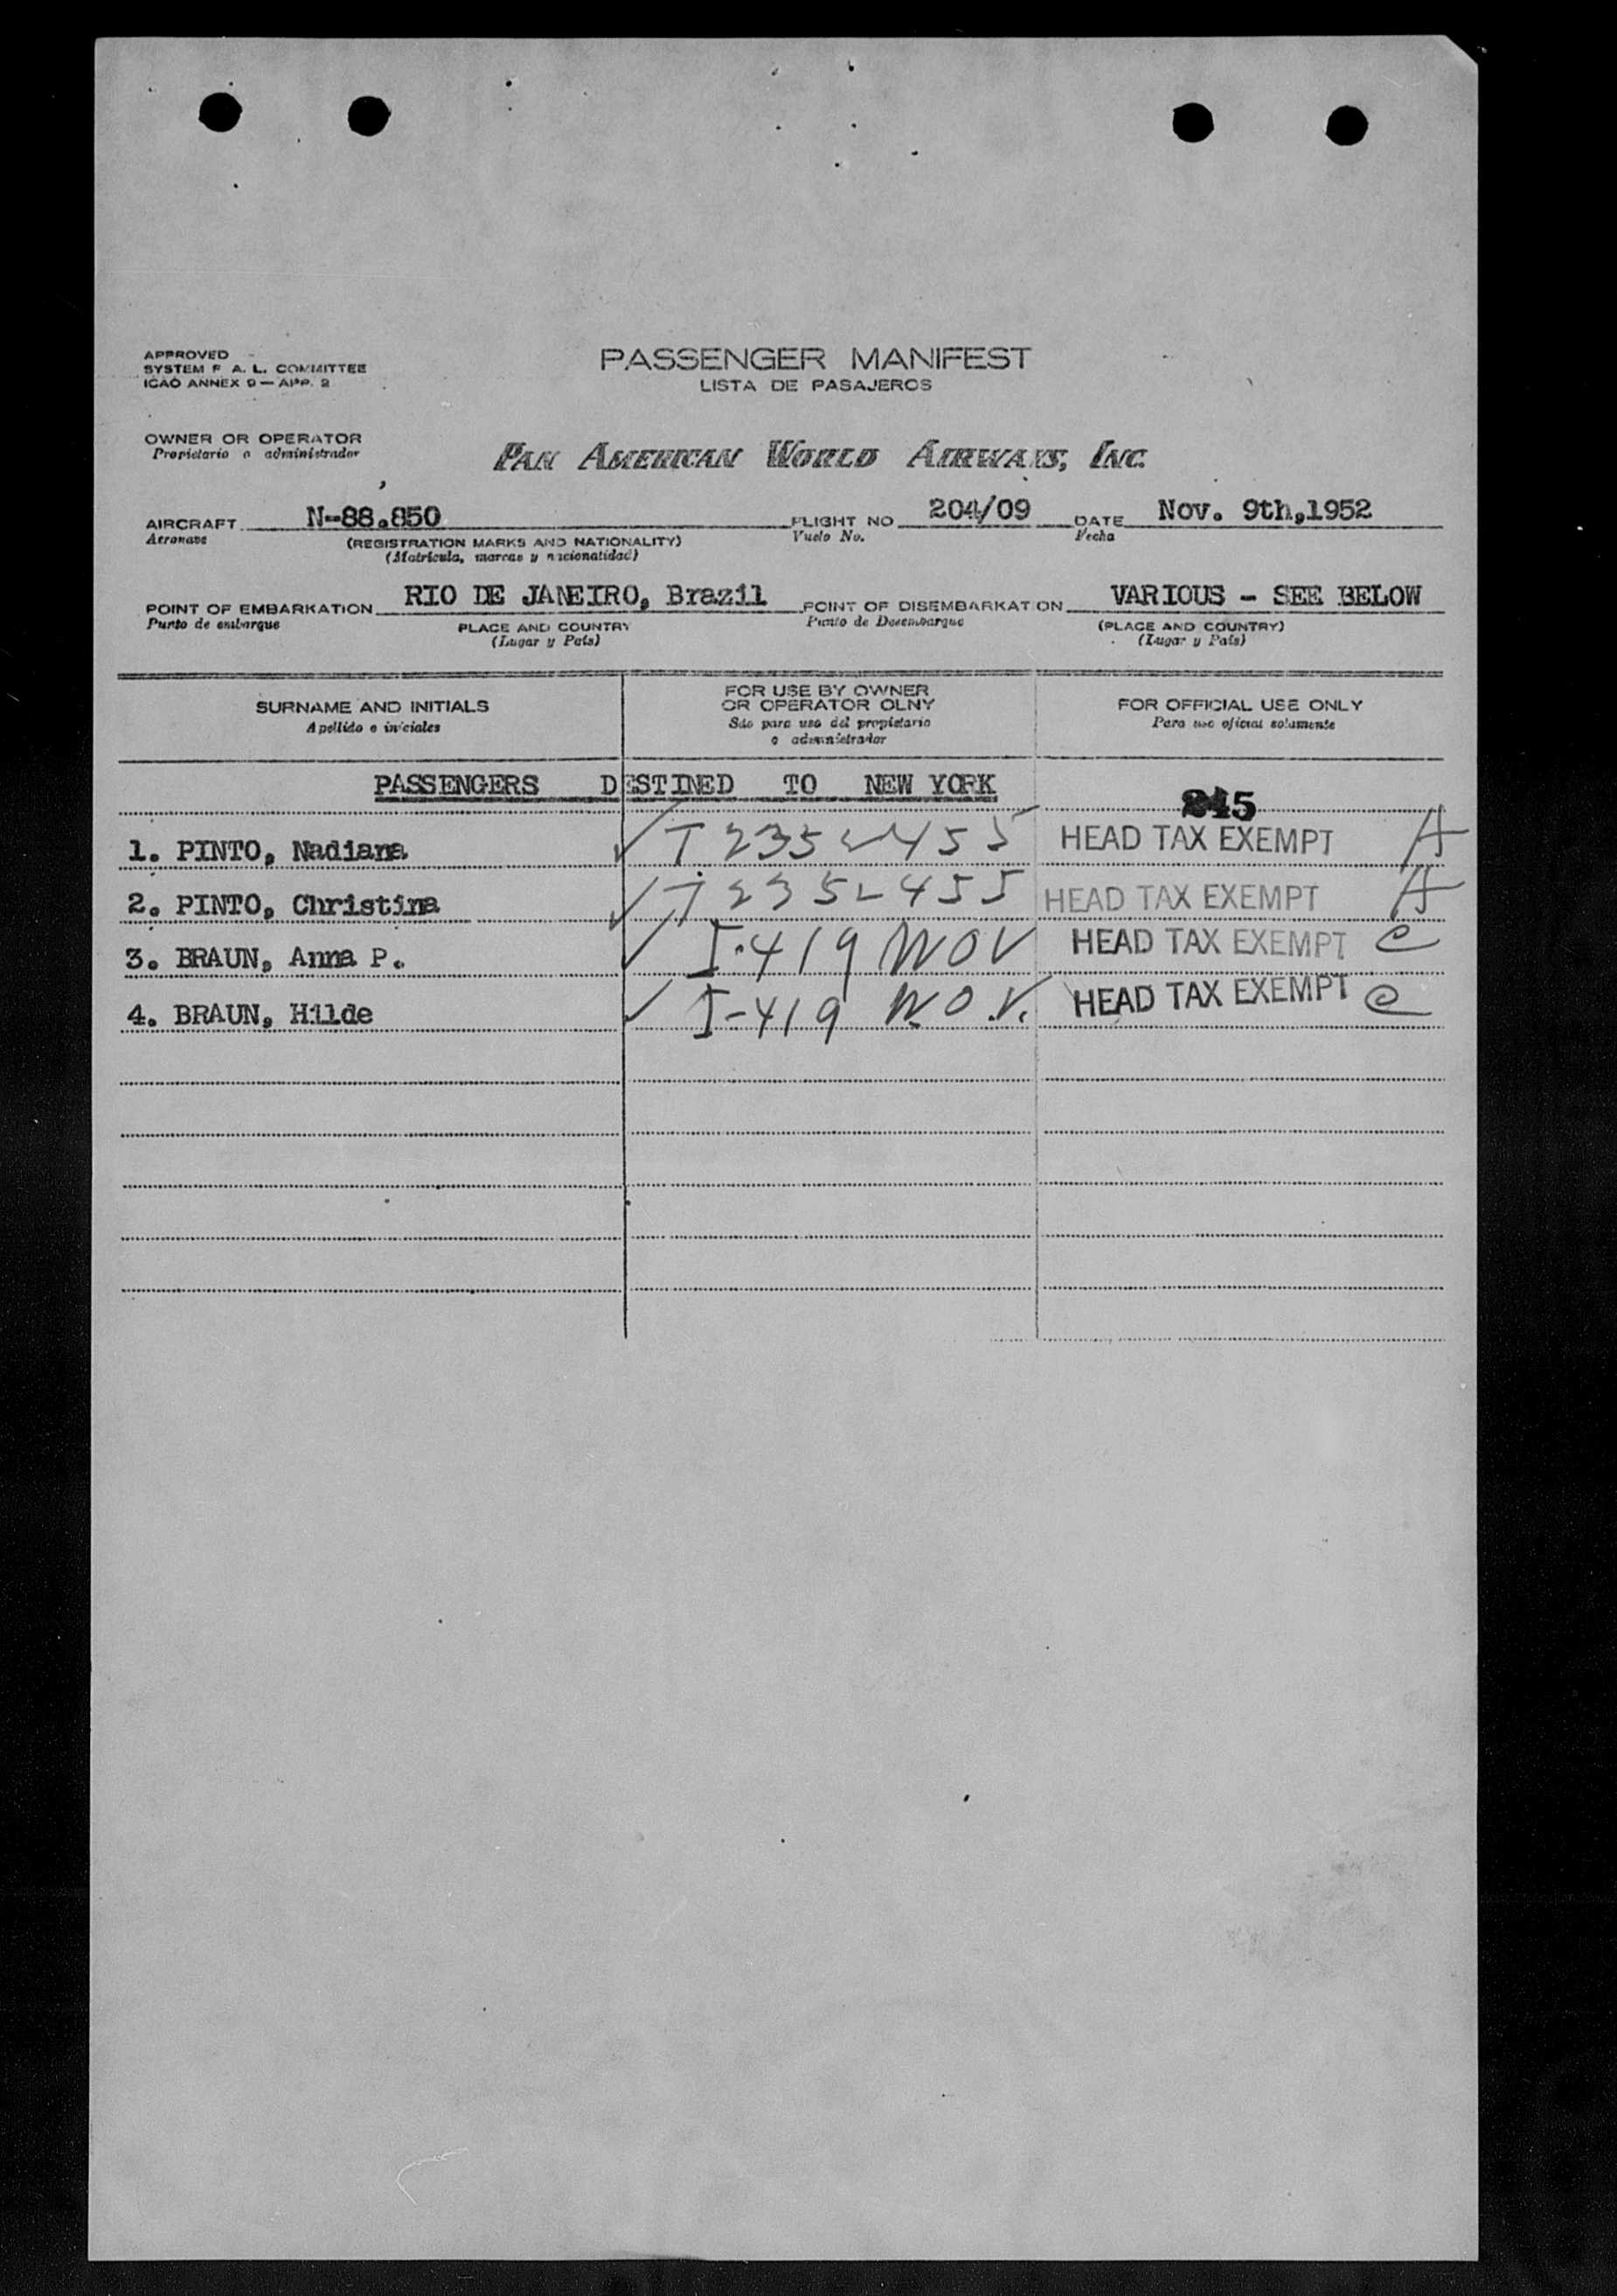 APPROVED
SYSTEM F. A. L. COMMITTEE
ICAO ANNEX 9 — APP. 2
PASSENGER MANIFEST
LISTA DE PASAJEROS
OWNER OR OPERATOR
Propietario o administrador
PAN AMERICAN WORLD AIRWAYS, INC.
AIRCRAFT N-88.850 FLIGHT NO 204/09 DATE Nov. 9th,1952
Aeronave (REGISTRATION MARKS AND NATIONALITY) Vuelo No. Fecha
(Matricula, marcas y nacionalidad)
POINT OF EMBARKATION RIO DE JANEIRO, Brazil POINT OF DISEMBARKATION VARIOUS - SEE BELOW
Punto de embarque PLACE AND COUNTRY Punto de Desembarque (PLACE AND COUNTRY)
(Lugar y País) (Lugar y País)
SURNAME AND INITIALS FOR USE BY OWNER OR OPERATOR OLNY FOR OFFICIAL USE ONLY
Apellido e iniciales Sólo para uso del propietario o administrador Para uso oficial solamente
PASSENGERS DESTINED TO NEW YORK
1. PINTO, Nadiana ✓ T 2352-455 HEAD TAX EXEMPT A
2. PINTO, Christina ✓ T 2352-455 HEAD TAX EXEMPT A
3. BRAUN, Anna P. ✓ I-419 WOV HEAD TAX EXEMPT C
4. BRAUN, Hilde ✓ I-419 W.O.V. HEAD TAX EXEMPT C